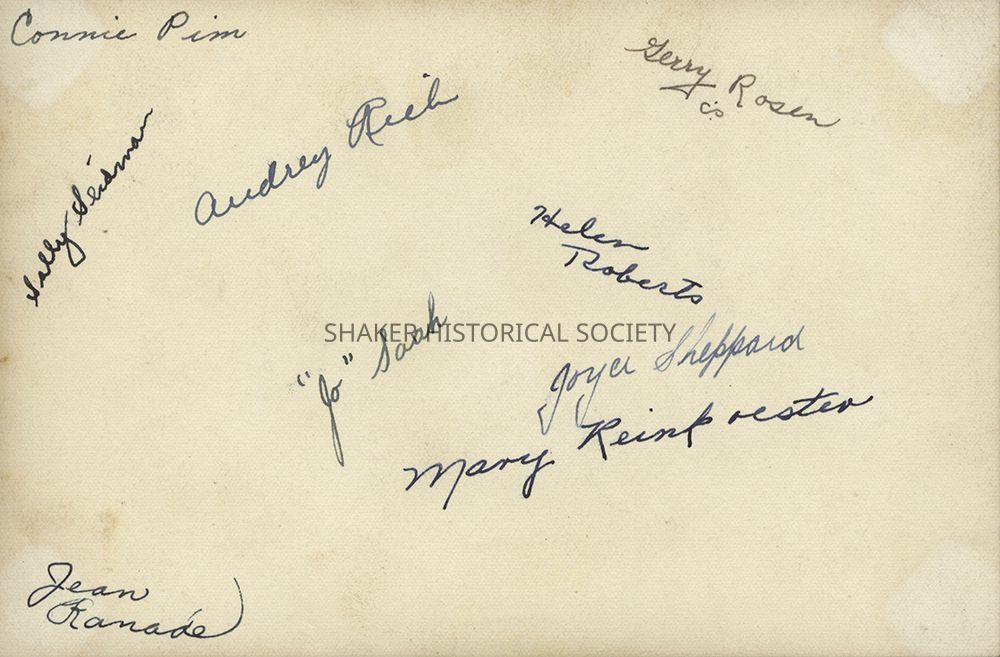 Connie Pim
Gerry Rosen
Audrey Rich
Sally Seidman
Helen
Roberts
SHAKER HISTORICAL SOCIETY
"Jo"
Joyce Sheppard
Mary
Jean